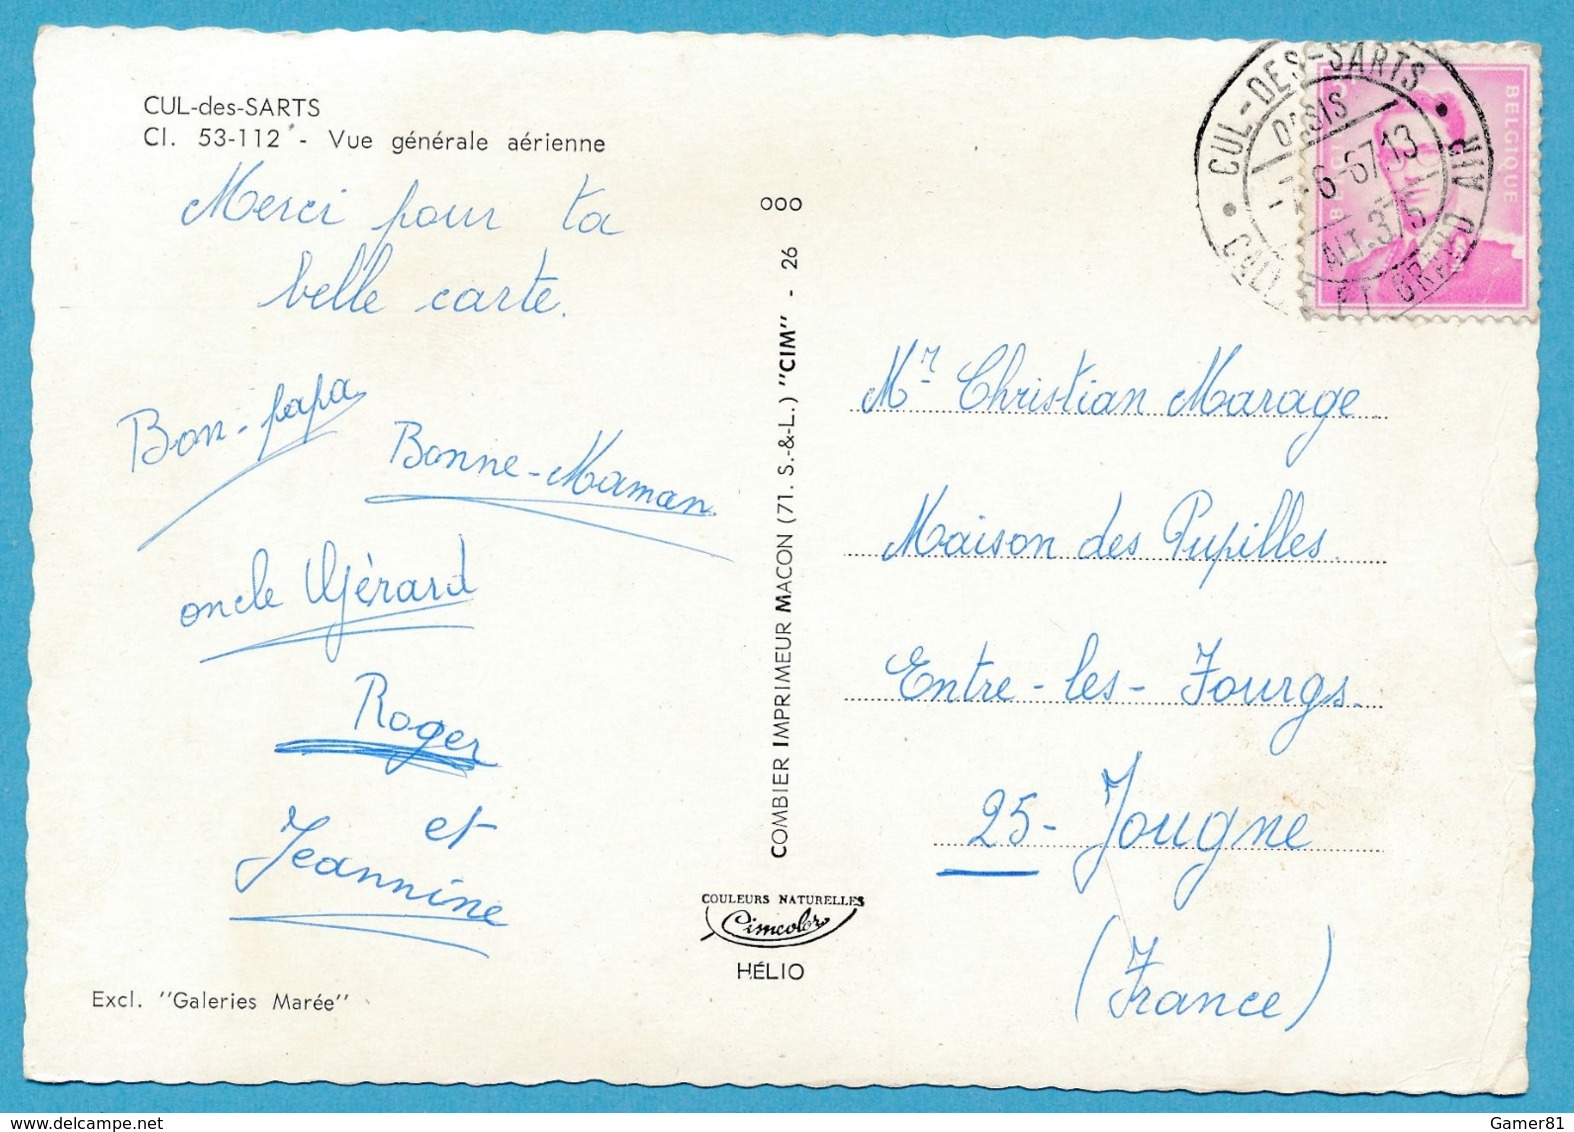 CUL-des-SARTS
Cl. 53-112 - Vue générale aérienne
Merci pour ta
belle carte.
Bon-papa
Bonne-Maman
oncle Gérard
Roger
et
Jeannine
Excl. "Galeries Marée"
COMBIER IMPRIMEUR MACON (71. S.-&-L.) "CIM" - 26 ooo
COULEURS NATURELLES
Cimcolor
HÉLIO
CUL-DES-SARTS
OASIS
6-67 13
ALT. 375
ET GRAND AIR
BELGIQUE
Mr Christian Marage
Maison des Pupilles
Entre-les-Fourgs.
25- Jougne
(France)
Gamer81